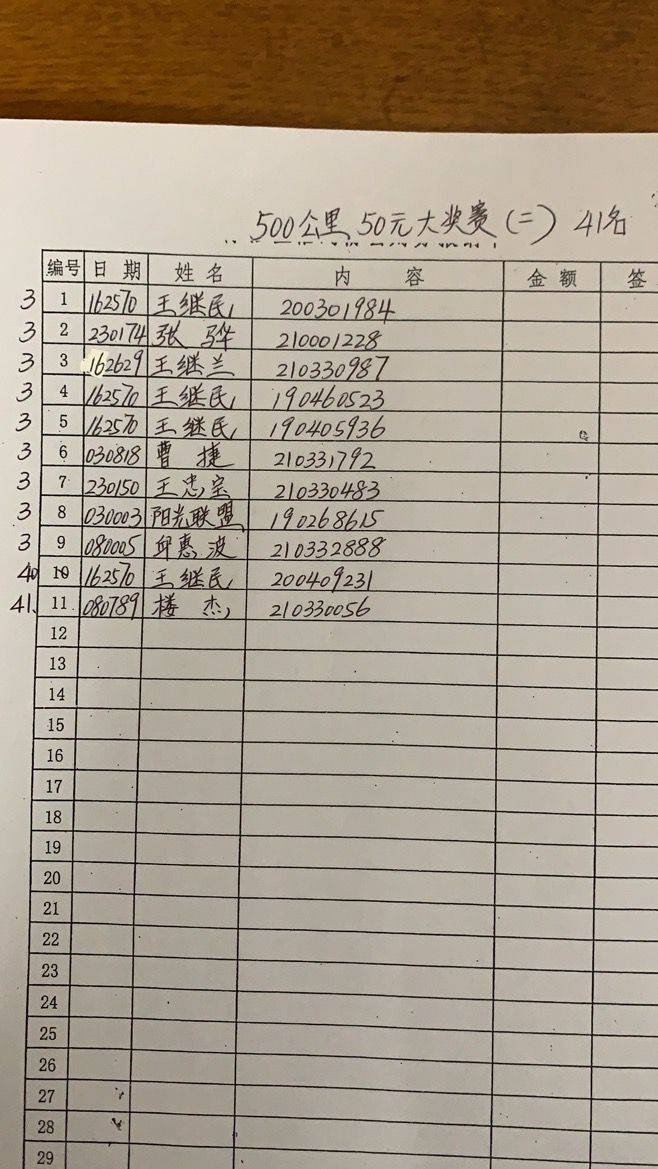 500公里50元大奖赛(二) 41名
编号 日期 姓名 内容 金额 签
3 1 162570 王继民 200301984
3 2 230174 张骅 210001228
3 3 162629 王继兰 210330987
3 4 162570 王继民 190460523
3 5 162570 王继民 190405936
3 6 030818 曹捷 210331792
3 7 230150 王忠宝 210330483
3 8 030003 阳光联盟 190268615
3 9 080005 邱惠波 210332888
40 10 162570 王继民 200409231
41 11 080789 楼杰 210330056
12
13
14
15
16
17
18
19
20
21
22
23
24
25
26
27
28
29